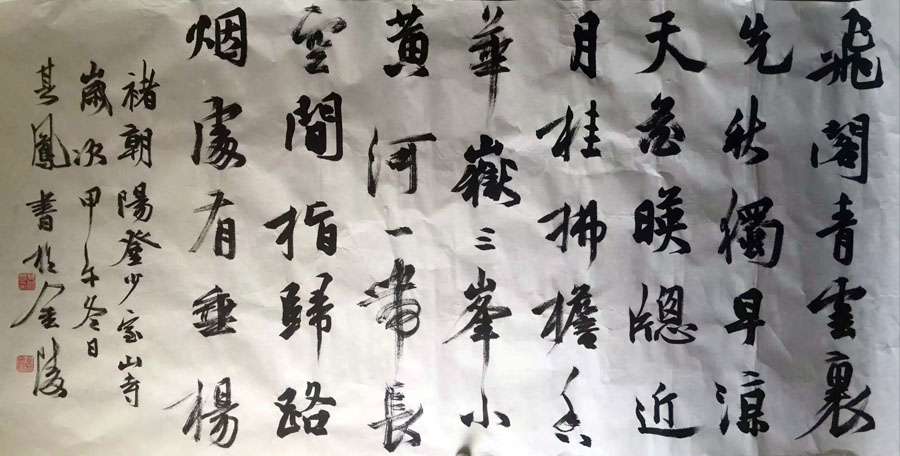 飛閣青雲裏
先秋獨早涼
天花暎牕近
月桂拂檐香
華嶽三峯小
黄河一帶長
空間指歸路
烟處有垂楊
褚朝陽登少室山寺
歲次甲午冬日
其鳳書於金陵